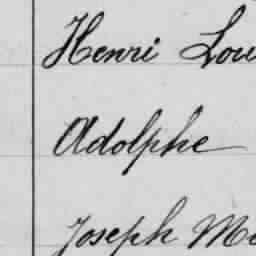 Henri Lou
Adolphe
Joseph Me